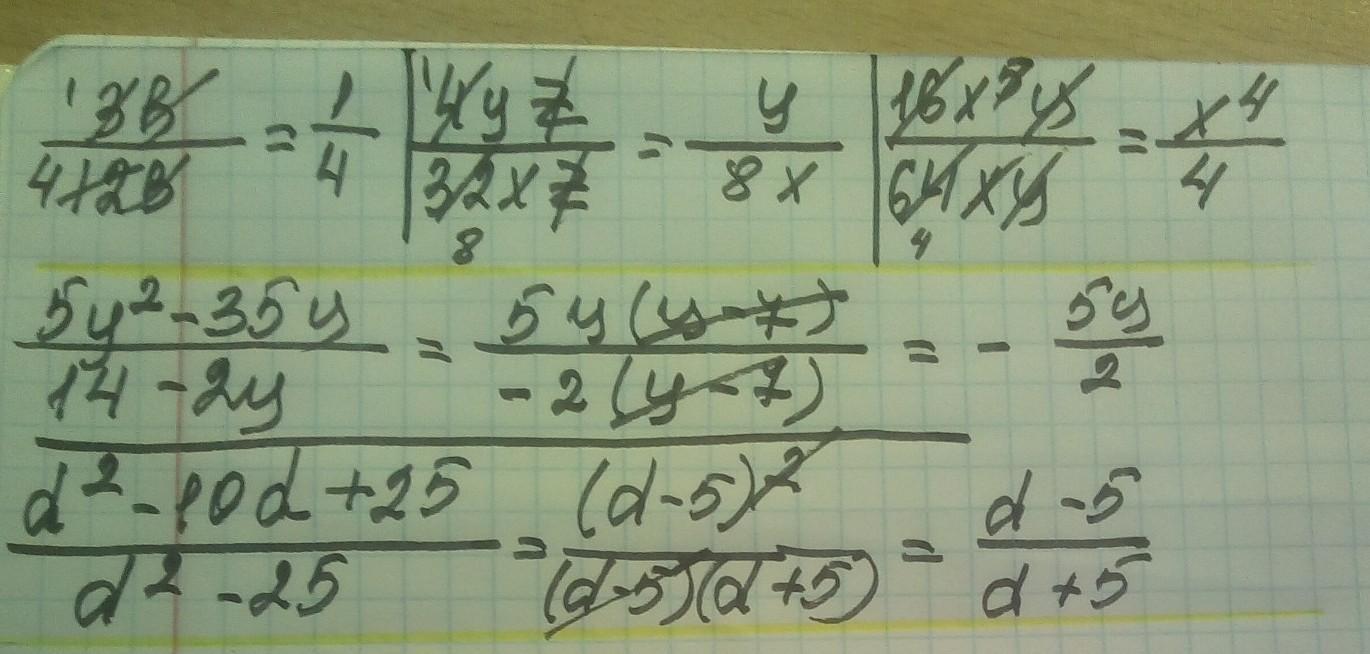 ¹3в/₄12в = 1/4 | ¹4yz/32₈xz = y/8x | 16x⁵y/64₄xy = x⁴/4
5y² - 35y/14 - 2y = 5y(y-7)/-2(y-7) = - 5y/2
d² - 10d + 25/d² - 25 = (d-5)²/(d-5)(d+5) = d-5/d+5